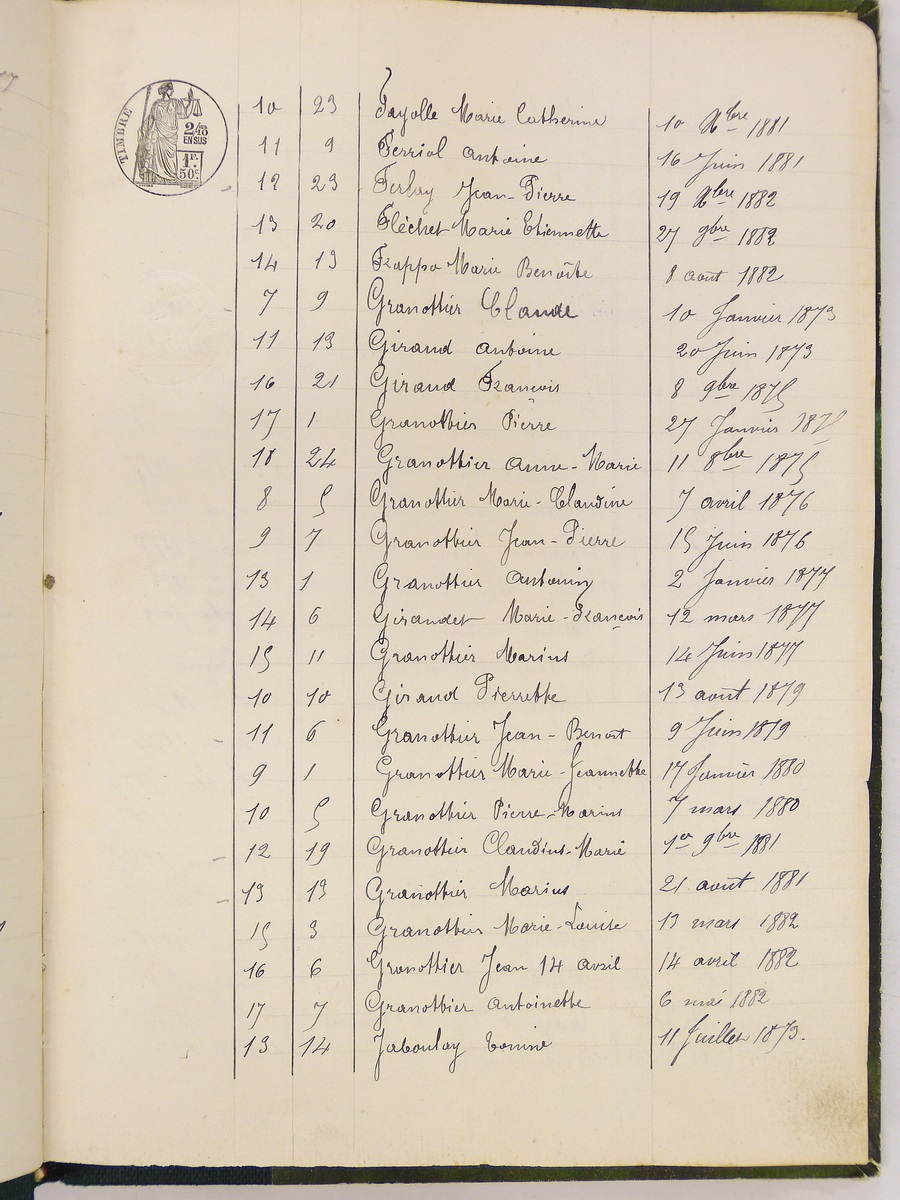 TIMBRE
2/10
EN SUS
1F.
50c.
10 23 Fayolle Marie Catherine 10 Xbre 1881
11 9 Ferriol Antoine 16 Juin 1881
12 23 Ferlay Jean-Pierre 19 Xbre 1882
13 20 Fléchet Marie Etiennette 27 9bre 1882
14 13 Frappa Marie Benoîte 8 aout 1882
7 9 Granottier Claude 10 Janvier 1873
11 13 Giraud Antoine 20 Juin 1873
16 21 Giraud François 8 9bre 1875
17 1 Granottier Pierre 27 Janvier 1875
18 24 Granottier Anne-Marie 11 8bre 1875
8 5 Granottier Marie-Claudine 7 avril 1876
9 7 Granottier Jean-Pierre 15 Juin 1876
13 1 Granottier Antonin 2 Janvier 1877
14 6 Giraudet Marie-François 12 mars 1877
15 11 Granottier Marius 14 Juin 1877
10 10 Giraud Pierrette 13 août 1879
11 6 Granottier Jean-Benoît 9 Juin 1879
9 1 Granottier Marie-Jeannette 17 Janvier 1880
10 5 Granottier Pierre-Marius 7 mars 1880
12 19 Granottier Claudius-Marie 1er 9bre 1881
13 13 Granottier Marius 21 août 1881
15 3 Granottier Marie-Louise 13 mars 1882
16 6 Granottier Jean 14 avril 14 avril 1882
17 7 Granottier Antoinette 6 mai 1882
13 14 Jaboulay 11 Juillet 1873.